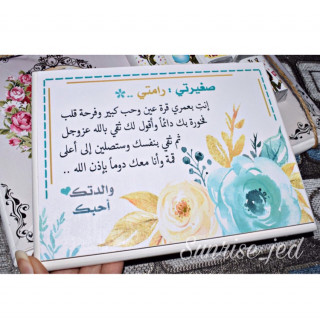 صغيرتي : رامتي ..
إنتِ بعمري قرة عين وحب كبير وفرحة قلب
فخورة بك دائماً وأقول لك ثقي بالله عزوجل
ثم ثقي بنفسك وستصلين إلى أعلى
قمة وأنا معك دوماً بإذن الله ..
والدتك
أحبك
Sunrise_jed